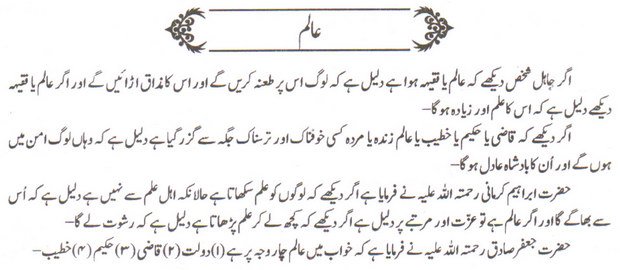 عالم
اگر جاہل شخص دیکھے کہ عالم یا فقیہہ ہوا ہے دلیل ہے کہ لوگ اس پر طعنہ کریں گے اور اس کا مذاق اڑائیں گے اور اگر عالم یا فقیہہ
دیکھے دلیل ہے کہ اس کا علم اور زیادہ ہوگا۔
اگر دیکھے کہ قاضی یا حکیم یا خطیب یا عالم زندہ یا مردہ کسی خوفناک اور ترسناک جگہ سے گزر گیا ہے دلیل ہے کہ وہاں لوگ امن میں
ہوں گے اور اُن کا بادشاہ عادل ہوگا۔
حضرت ابراہیم کرمانی رحمتہ اللہ علیہ نے فرمایا ہے اگر دیکھے کہ لوگوں کو علم سکھاتا ہے حالانکہ اہل علم سے نہیں ہے دلیل ہے کہ اُس
سے بھاگے گا اور اگر عالم ہے تو عزت اور مرتبے پر دلیل ہے اگر دیکھے کہ کچھ لے کر علم پڑھاتا ہے دلیل ہے کہ رشوت لے گا۔
حضرت جعفر صادق رحمتہ اللہ علیہ نے فرمایا ہے کہ خواب میں عالم چار وجہ پر ہے (۱) دولت (۲) قاضی (۳) حکیم (۴) خطیب۔